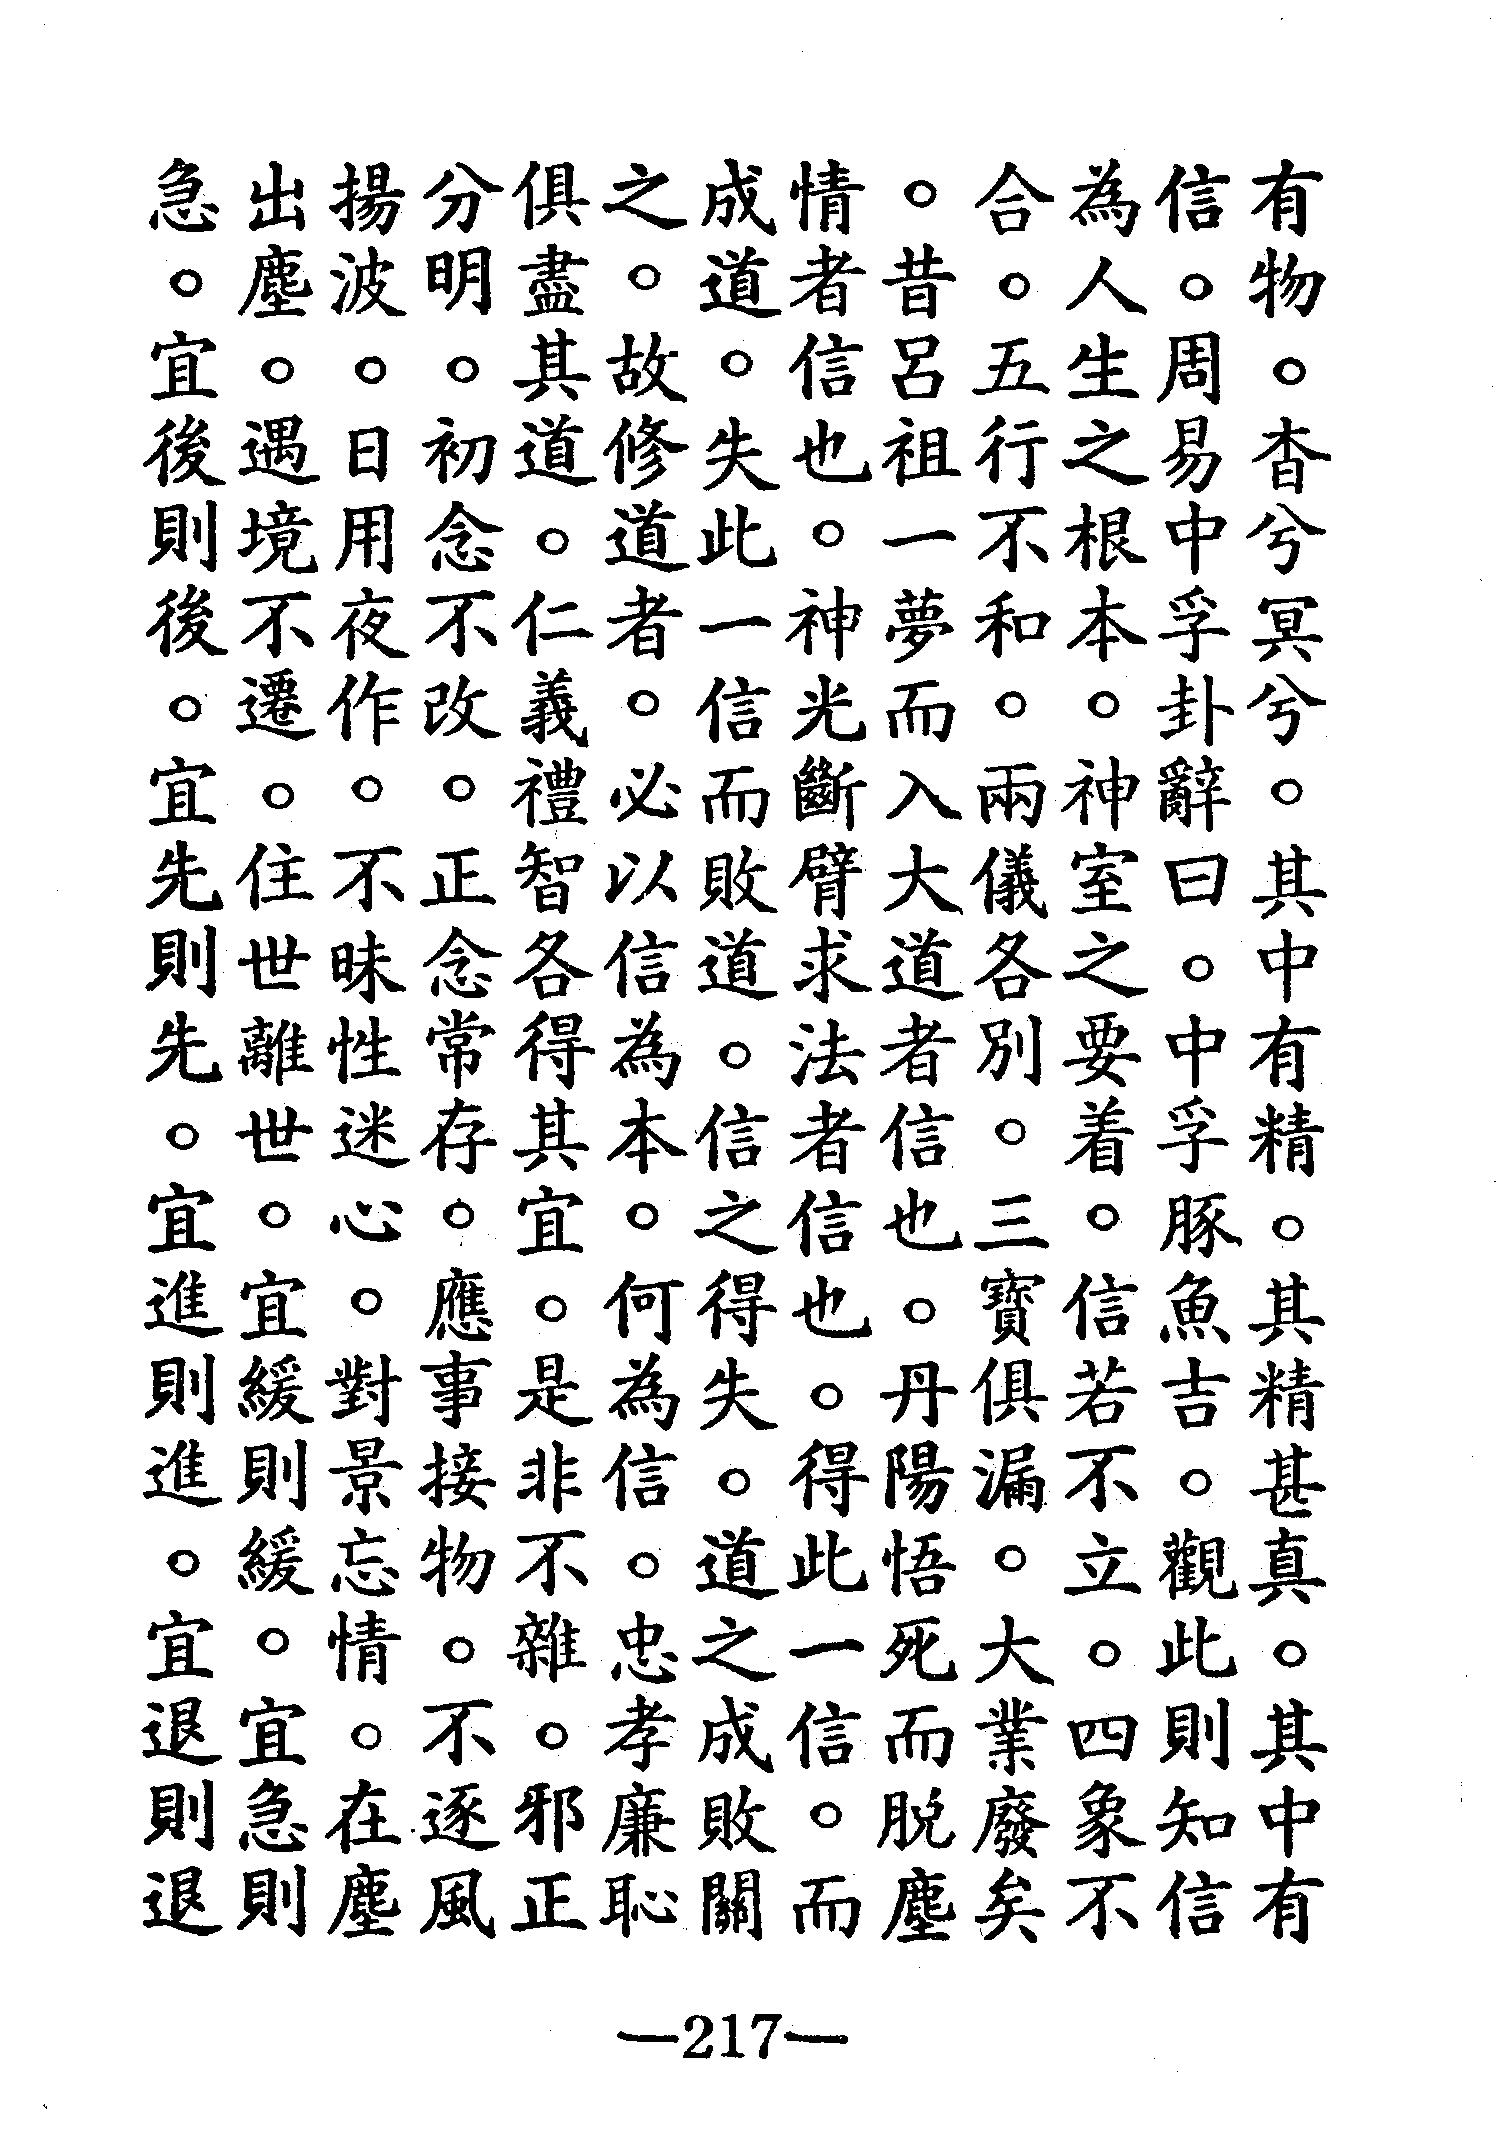 有物。杳兮冥兮。其中有精。其精甚真。其中有
信。周易中孚卦辭曰。中孚豚魚吉。觀此則知信
為人生之根本。神室之要着。信若不立。四象不
合。五行不和。兩儀各別。三寶俱漏。大業廢矣
。昔呂祖一夢而入大道者信也。丹陽悟死而脫塵
情者信也。神光斷臂求法者信也。得此一信。而
成道。失此一信而敗道。信之得失。道之成敗關
之。故修道者。必以信為本。何為信。忠孝廉恥
俱盡其道。仁義禮智各得其宜。是非不雜。邪正
分明。初念不改。正念常存。應事接物。不逐風
揚波。日用夜作。不昧性迷心。對景忘情。在塵
出塵。遇境不遷。住世離世。宜緩則緩。宜急則
急。宜後則後。宜先則先。宜進則進。宜退則退
—217—